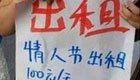 出租
情人节出租
100元/天